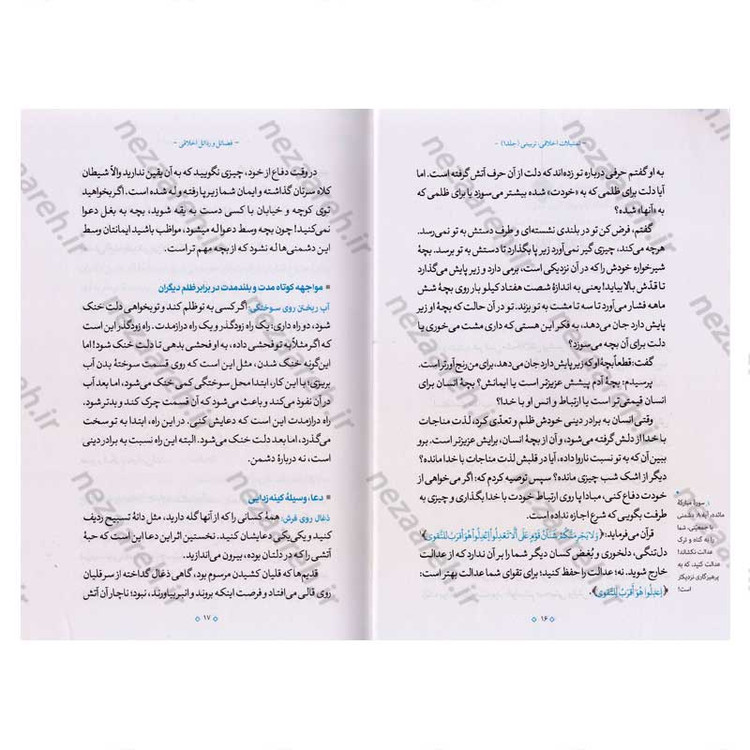 - تمثیلات اخلاقی، تربیتی (جلد۱) -
به او گفتم حرفی درباره تو زده‌اند که دلت از آن حرف آتش گرفته است. اما
آیا دلت برای ظلمی که به «خودت» شده بیشتر می‌سوزد یا برای ظلمی که
به «آنها» شده؟
گفتم، فرض کن تو در بلندی نشسته‌ای و طرف دستش به تو نمی‌رسد.
هرچه می‌کند، چیزی گیر نمی‌آورد زیر پا بگذارد تا دستش به تو برسد. بچهٔ
شیرخواره خودش را که آن نزدیکی است، برمی دارد و زیر پایش می‌گذارد
تا قدّش بالا بیاید! یعنی به اندازهٔ شصت هفتاد کیلو بار روی بچهٔ شش
ماهه فشار می‌آورد تا سه تا مشت به تو بزند. تو در آن حالت که بچهٔ او زیر
پایش دارد جان می‌دهد، به فکر این هستی که داری مشت می‌خوری یا
دلت برای آن بچه می‌سوزد؟
گفت: قطعاً بچهٔ او که زیر پایش دارد جان می‌دهد، برای من رنج آورتر است.
پرسیدم: بچهٔ آدم پیشش عزیزتر است یا ایمانش؟ بچهٔ انسان برای
انسان قیمتی‌تر است یا ارتباط و انس او با خدا؟
وقتی انسان به برادر دینی خودش ظلم و تعدّی کرد، لذت مناجات
با خدا از دلش گرفته می‌شود، و آن از بچهٔ انسان، برایش عزیزتر است. پس
ببین آن که به تو نسبت ناروا داده، آیا در قلبش لذت مناجات با خدا مانده؟
دیگر از اشک شب چیزی مانده؟ سپس توصیه کردم که: اگر می‌خواهی از
خودت دفاع کنی، مبادا پا روی ارتباط خودت با خدا بگذاری و چیزی به
طرفت بگویی که شرع اجازه نداده است.
قرآن می‌فرماید: ﴿وَلا یَجْرِمَنَّکُمْ شَنَآنُ قَوْمٍ عَلی أَلّا تَعْدِلُوا اعْدِلُوا هُوَ أَقْرَبُ لِلتَّقْوی﴾
دل‌تنگی، دلخوری و بُغض کسان دیگر شما را بر آن ندارد که از عدالت
خارج شوید. نه؛ عدالت را حفظ کنید؛ برای تقوای شما عدالت بهتر است:
﴿اِعْدِلُوا هُوَ أَقْرَبُ لِلتَّقْوی﴾.
۱. سورهٔ مبارکهٔ
مائده، آیه۸: دشمنی
با جمعیّتی، شما
را به گناه و ترک
عدالت نکشاند!
عدالت کنید، که به
پرهیزگاری نزدیکتر
است!
۱۶
- فضائل و رذائل اخلاقی -
در وقت دفاع از خود، چیزی نگویید که به آن یقین ندارید والّا شیطان
کلاه سرتان گذاشته و ایمان شما زیر پا رفته و له شده است. اگر بخواهید
توی کوچه و خیابان با کسی دست به یقه شوید، بچه به بغل دعوا
نمی‌کنید! چون بچه وسط دعوا له می‌شود، مواظب باشید ایمانتان وسط
این دشمنی‌ها له نشود که از بچه مهم تر است.
مواجهه کوتاه مدت و بلندمدت در برابر ظلم دیگران
آب ریختن روی سوختگی: اگر کسی به تو ظلم کند و تو بخواهی دلت خنک
شود، دو راه داری: یک راه زودگذر و یک راه درازمدت. راه زودگذر این است
که اگر مثلاً به تو فحشی داده، به او فحشی بدهی تا دلت خنک شود! اما
این‌گونه خنک شدن، مثل این است که روی قسمت سوختهٔ بدن آب
بریزی؛ با این کار، ابتدا محل سوختگی کمی خنک می‌شود، اما بعد آب
در آن نفوذ می‌کند و باعث می‌شود که آن قسمت چرک کند و بدتر شود.
راه درازمدت این است که دعایش کنی. در این راه، ابتدا به تو سخت
می‌گذرد، اما بعد دلت خنک می‌شود. البته این راه نسبت به برادر دینی
است، نه دربارهٔ دشمن.
دعا، وسیلهٔ کینه زدایی
ذغال روی فرش: همهٔ کسانی را که از آنها گله دارید، مثل دانهٔ تسبیح ردیف
کنید و یکی‌یکی دعایشان کنید. نخستین اثر این دعا این است که حبهٔ
آتشی را که در دلتان بوده، بیرون می‌اندازید.
قدیم‌ها که قلیان کشیدن مرسوم بود، گاهی ذغال گداخته از سر قلیان
روی قالی می‌افتاد و فرصت اینکه بروند و انبر بیاورند، نبود؛ ناچار آن آتش
۱۷
nezaareh.ir